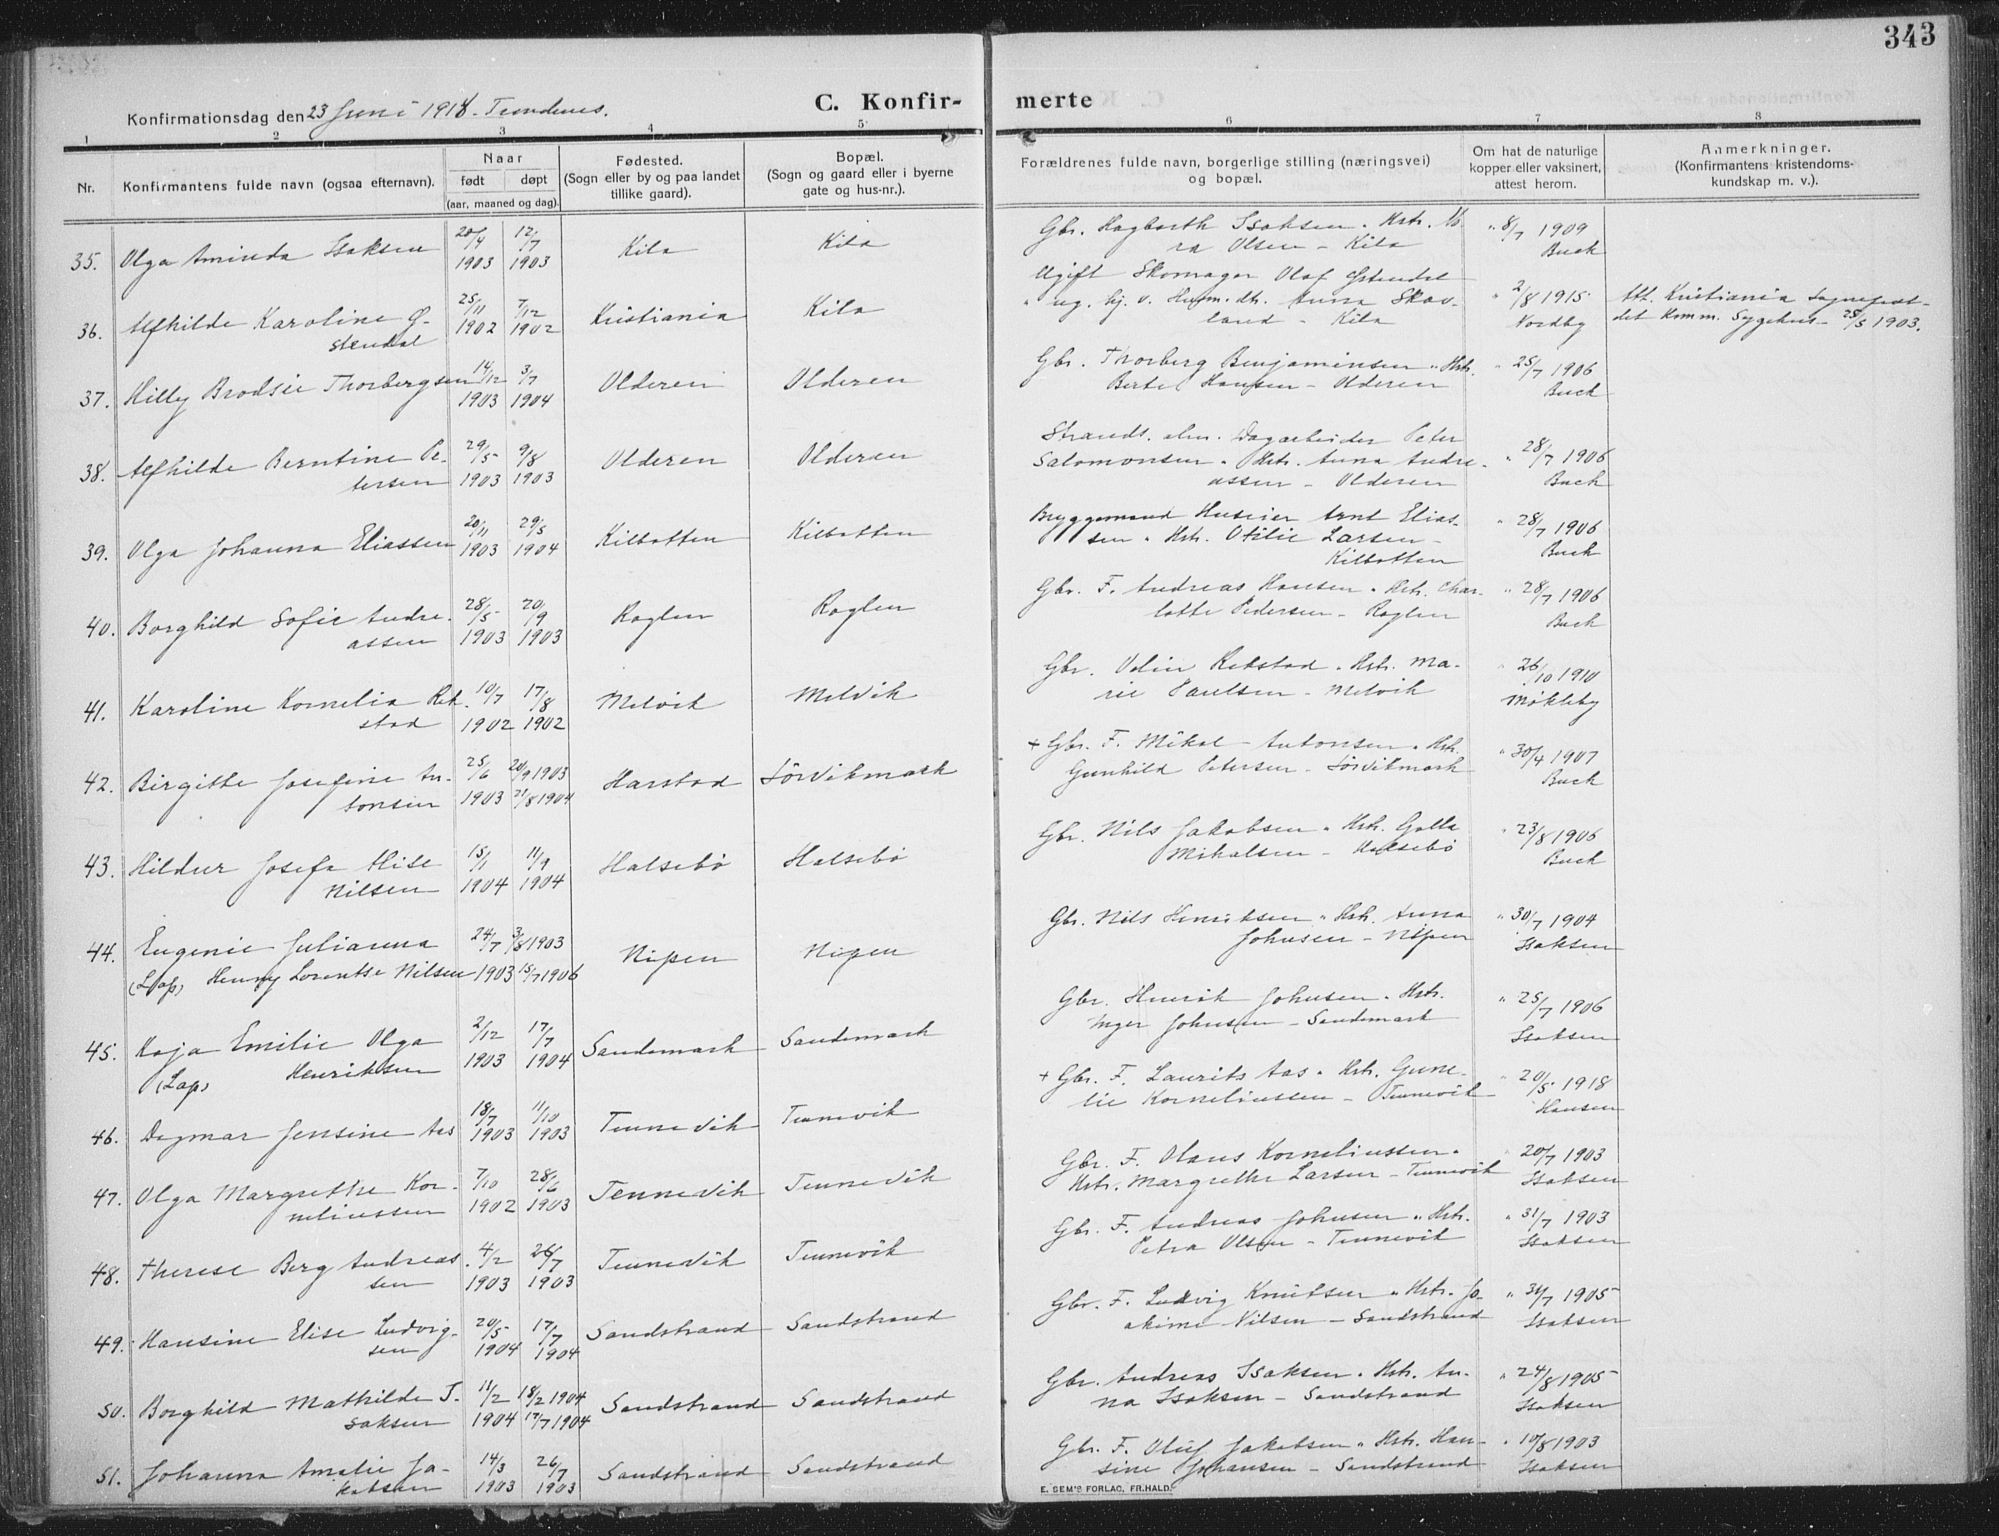 343
Konfirmationsdag den 23 Juni 1918 - Trondenes.
C. Konfir- merte
1 2 3 4 5 6 7 8
Nr.
Konfirmantens fulde navn (ogsaa efternavn).
Naar
født døpt
(aar, maaned og dag).
Fødested.
(Sogn eller by og paa landet
tillike gaard).
Bopæl.
(Sogn og gaard eller i byerne
gate og hus-nr.).
Forældrenes fulde navn, borgerlige stilling (næringsvei)
og bopæl.
Om hat de naturlige
kopper eller vaksinert,
attest herom.
Anmerkninger.
(Konfirmantens kristendoms-
kundskap m. v.).
35. Olga Aminda Isaksen 20/4 1903 12/7 1903 Kila Kila Gbr. Hagbarth Isaksen. Hstr. No-
ra Olsen - Kila " 8/7 1909 Buch
36. Alfhilde Karoline Ø-
stendal 25/11 1902 7/12 1902 Kristiania Kila Ugift Skomager Olaf Østendal
" ug. hj. v. Husm. dtr. Anna Skav-
land - Kila " 2/8 1915 Nordby Att. Kristiania Sogneprest-
det Komm. Sygehus - 25/5 1903.
37. Hilly Brodsie Thorbergsen 14/12 1903 3/7 1904 Olderen Olderen Gbr. Thorberg Benjaminsen " Hstr.
Berte Hansen - Olderen " 25/7 1906 Buch
38. Alfhilde Berntine Pe-
tersen 29/5 1903 9/8 1903 Olderen Olderen Strands. alm. Dagarbeider Peter
Salomonsen " Hstr. Anna Andre-
assen - Olderen " 28/7 1906 Buch
39. Olga Johanna Eliassen 20/11 1903 29/5 1904 Kilbotten Kilbotten Bryggemand Huseier Arnt Elias-
sen " Hstr. Otilie Larsen -
Kilbotten " 28/7 1906 Buch
40. Borghild Sofie Andre-
assen 28/5 1903 20/9 1903 Roglen Roglen Gbr. F. Andreas Hansen " Hstr. Char-
lotte Pedersen - Roglen " 28/7 1906 Buch
41. Karoline Kornelia Rek-
stad 10/7 1902 17/8 1902 Melvik Melvik Gbr. Odin Rekstad " Hstr. Ma-
rie Paulsen - Melvik " 26/10 1910 Møkleby
42. Birgitte Josefine An-
tonsen 25/6 1903 20/9 1903 21/8 1904 Harstad Sørvikmark + Gbr. F. Mikal Antonsen " Hstr.
Gunhild Petersen - Sørvikmark " 30/4 1907 Buch
43. Hildur Josefa Alise
Nilsen 15/1 1904 11/9 1904 Halsebø Halsebø Gbr. Nils Jakobsen " Hstr. Golla
Mikalsen - Halsebø " 23/8 1906 Buch
44. Eugenie Julianna
(Lap) Henny Lorentse Nilsen 24/7 1903 3/8 1903 15/7 1906 Nipen Nipen Gbr. Nils Henriksen " Hstr. Anna
Johnsen - Nipen " 30/7 1904 Isaksen
45. Kaja Emilie Olga
(Lap) Henriksen 2/12 1903 17/7 1904 Sandemark Sandemark Gbr. Henrik Johnsen " Hstr.
Inger Johnsen - Sandemark " 25/7 1906 Isaksen
46. Dagmar Jensine Aas 18/7 1903 11/10 1903 Tennevik Tennevik + Gbr. F. Laurits Aas " Hstr. Gune-
lie Korneliussen - Tennevik " 20/5 1918 Hansen
47. Olga Margrethe Kor-
neliussen 7/10 1902 28/6 1903 Tennevik Tennevik Gbr. F. Olaus Korneliussen "
Hstr. Margrethe Larsen - Tennevik " 20/7 1903 Isaksen
48. Therese Berg Andreas-
sen 4/2 1903 26/7 1903 Tennevik Tennevik Gbr. F. Andreas Johnsen " Hstr.
Petra Olsen - Tennevik " 31/7 1903 Isaksen
49. Hansine Elise Ludvig-
sen 20/5 1904 17/7 1904 Sandstrand Sandstrand Gbr. F. Ludvig Knutsen " Hstr. Jo-
akime Nilsen - Sandstrand " 31/7 1905 Isaksen
50. Borghild Mathilde I-
saksen 11/2 1904 18/2 1904 17/7 1904 Sandstrand Sandstrand Gbr. Andreas Isaksen " Hstr. An-
na Isaksen - Sandstrand " 24/8 1905 Isaksen
51. Johanna Amalie Ja-
kobsen 14/3 1903 26/7 1903 Sandstrand Sandstrand Gbr. F. Oluf Jakobsen " Hstr. Han-
sine Johansen - Sandstrand " 10/8 1903 Isaksen
E. SEM'S FORLAG, FR.HALD.